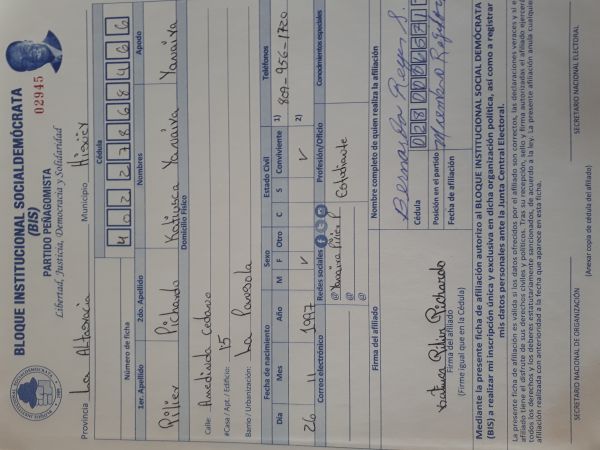 BLOQUE INSTITUCIONAL SOCIALDEMÓCRATA
(BIS)
PARTIDO PEÑAGOMISTA
Libertad, Justicia, Democracia y Solidaridad
02945
Provincia La Altagracia Municipio Higüey
Número de ficha Cédula
402 2786846 6
1er. Apellido 2do. Apellido Nombres Apodo
Pilier Pichardo Katiusca Yanaira Yanaira
Domicilio Físico
Calle:
#Casa / Apt. / Edificio: 15
Barrio / Urbanización: La
Fecha de nacimiento Sexo Estado Civil Teléfonos
Día Mes Año M F Otro C S Conviviente 1) 809-956-1720
26 11 1997 ✓ ✓ 2)
Correo electrónico Redes sociales Profesión/Oficio Conocimientos especiales
@ Yanaira Pilier P. Estudiante
@
@
Firma del afiliado Nombre completo de quien realiza la afiliación
Bernarda Reyes S.
Cédula
Posición en el partido Miembro
Fecha de afiliación
Pilier Pichardo
Firma del afiliado
(Firme igual que en la Cédula)
Mediante la presente ficha de afiliación autorizo al BLOQUE INSTITUCIONAL SOCIAL DEMÓCRATA
(BIS) a realizar mi inscripción única y exclusiva en dicha organización política, así como a registrar
mis datos personales ante la Junta Central Electoral.
La presente ficha de afiliación es valida si los datos ofrecidos por el afiliado son correctos, las declaraciones veraces y si el
afiliado tiene el disfrute de sus derechos civiles y políticos. Tras su recepción, sello y firma autorizadas el afiliado ejercerá
todos los derechos y los deberes estatutariamente sancionados, de acuerdo a la ley. La presente afiliación anula cualquier
afiliación realizada con anterioridad a la fecha que aparece en esta ficha.
SECRETARIO NACIONAL DE ORGANIZACIÓN SECRETARIO NACIONAL ELECTORAL
(Anexar copia de cédula del afiliado)